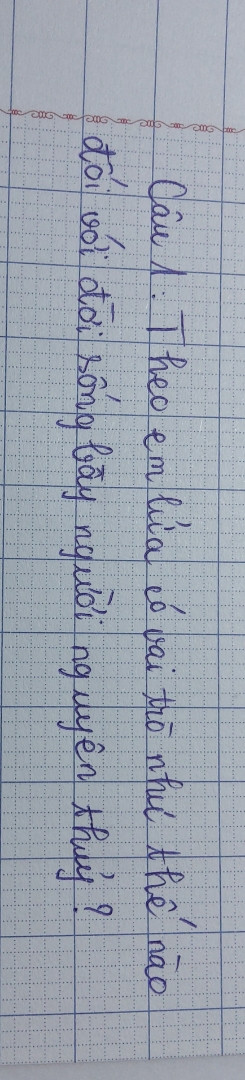 Câu 1: Theo em lửa có vai trò như thế nào
đối với đời sống bầy người nguyên thủy?